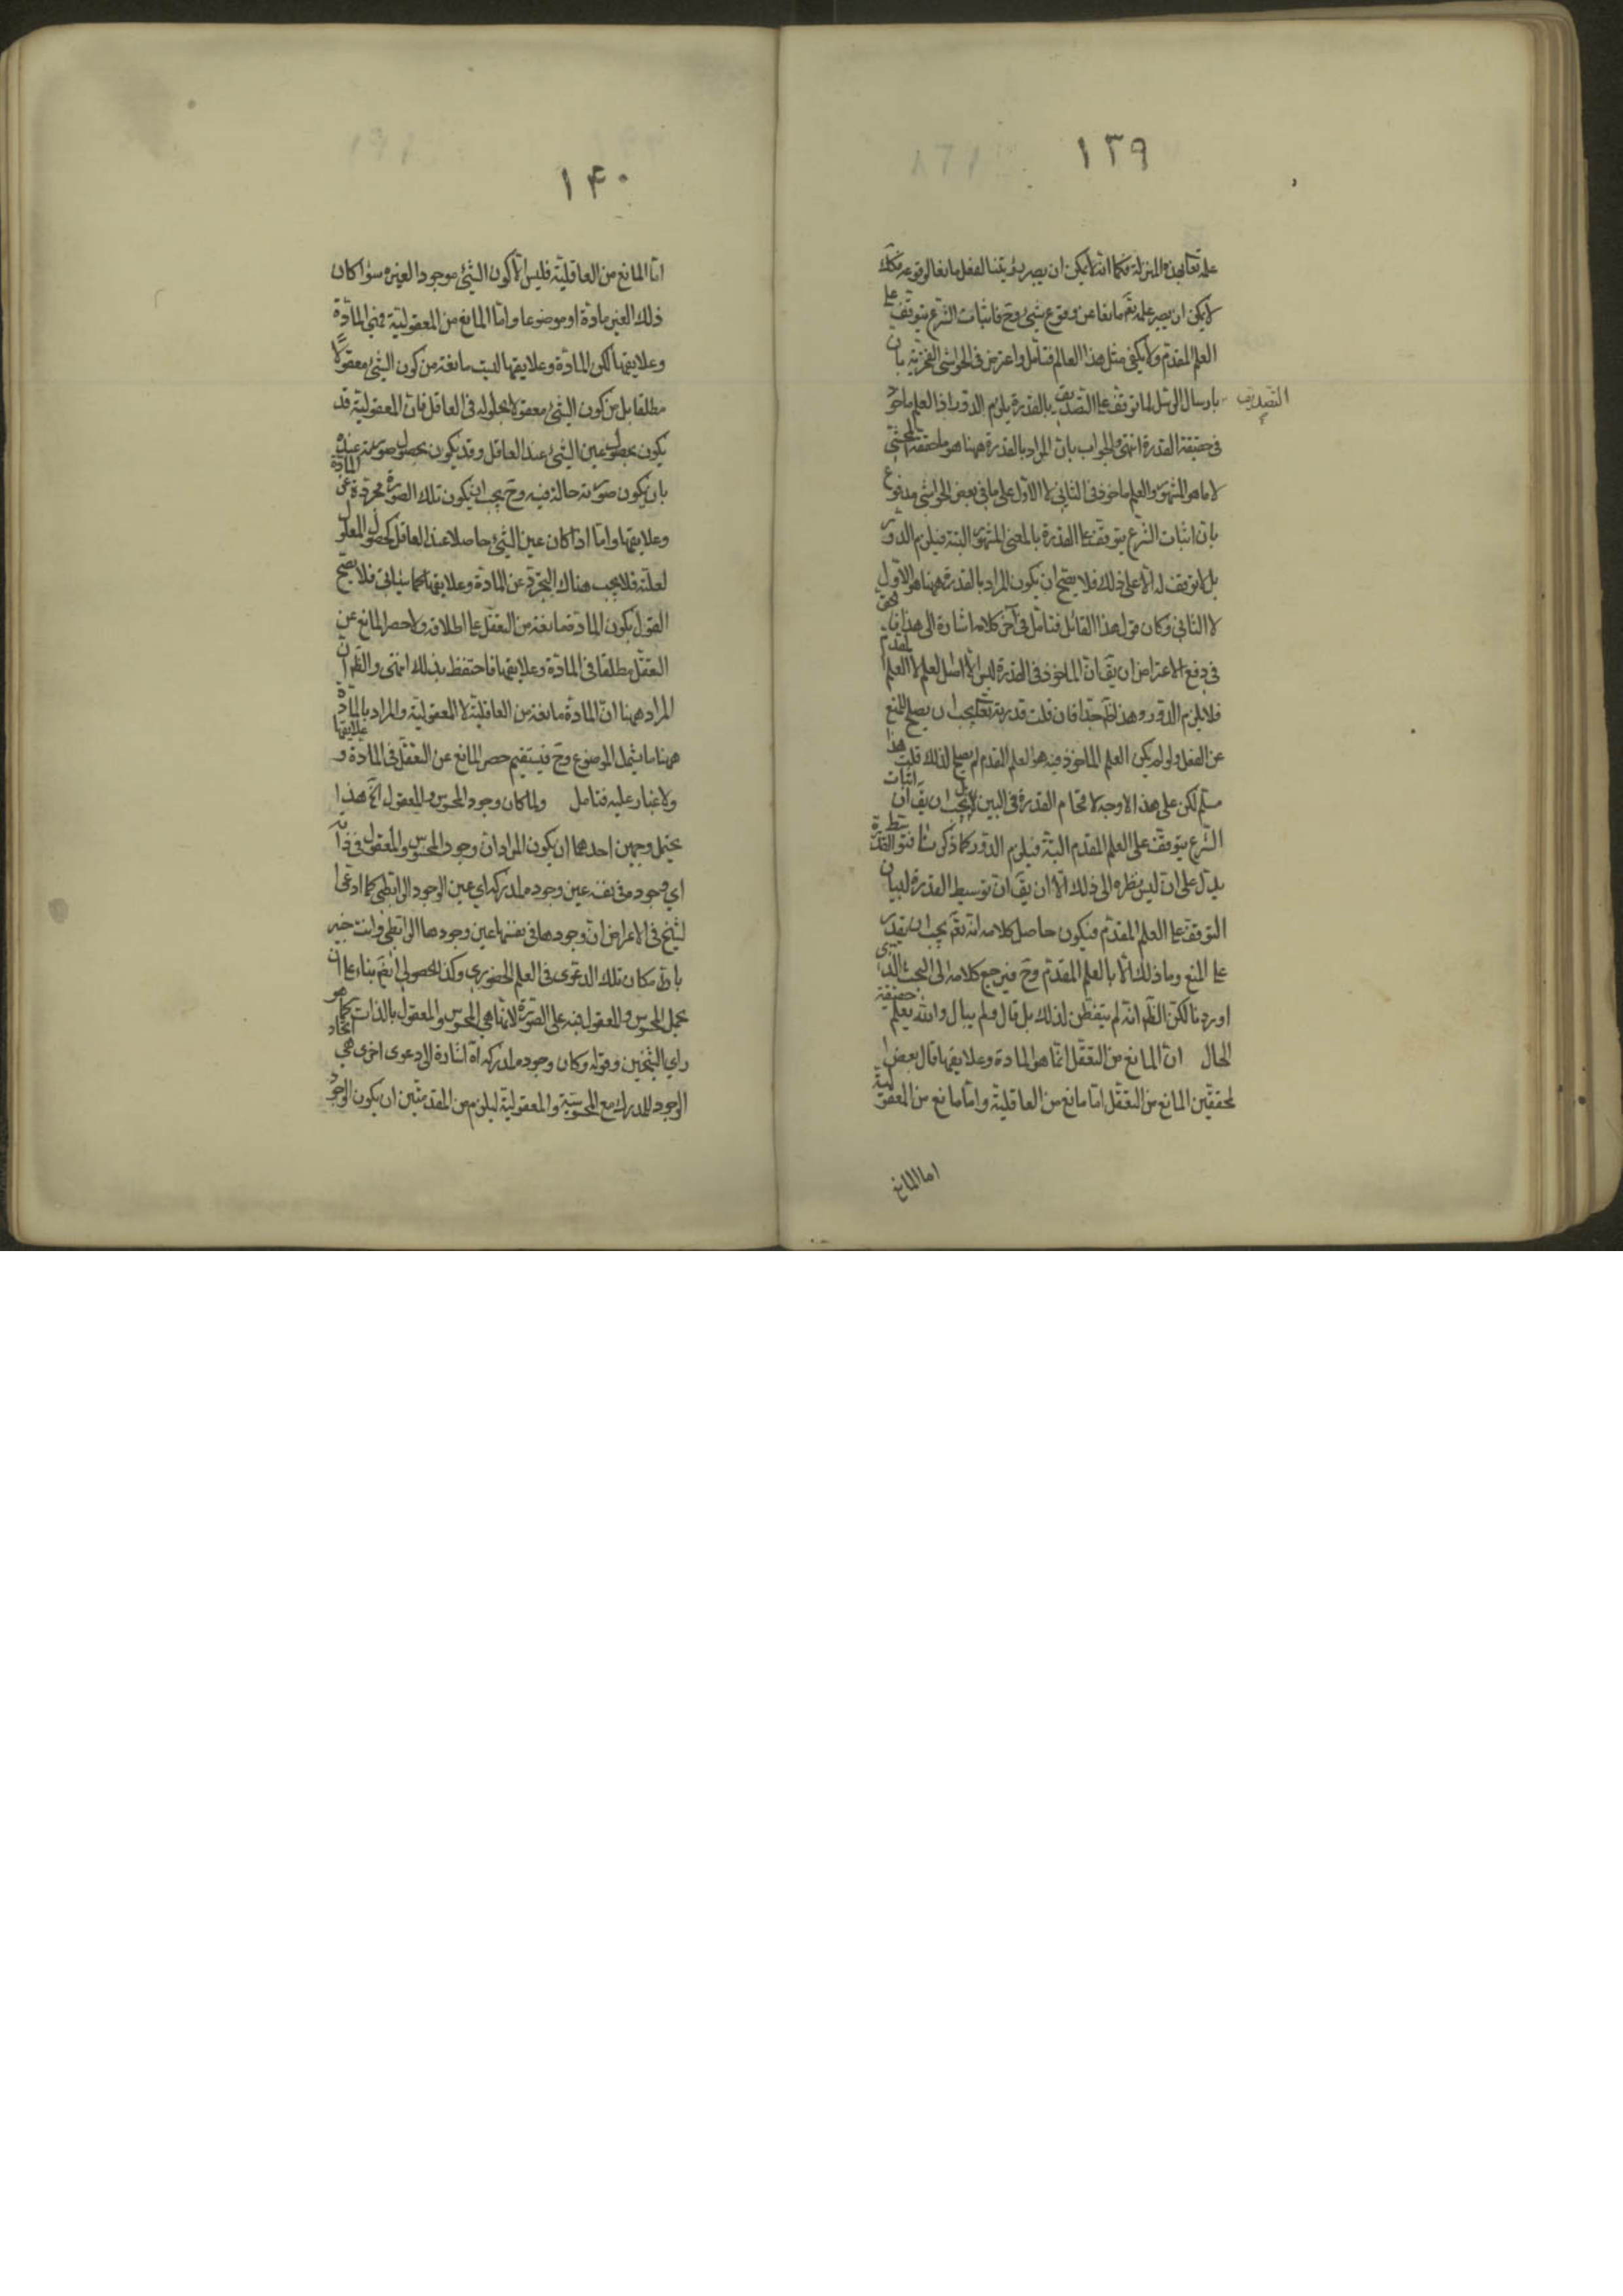 ١٣٩
علمه تعالى بهذه المنزلة فكما انه لا يمكن ان يصير رؤيتنا الفعل مانعا لوقوعه فكك
لا يمكن ان يصير علمه تعم مانعا عن وقوع شيئ وح فاثبات الشرع يتوقف على
العلم المقدم ولا يكفي مثل هذا العالم فتامل واعترض في الحواشي الفخرية بان
بارسال الرسل لما توقف على التصديق بالقدرة يلزم الدور اذ العلم ماخوذ
التصديق
في حقيقة القدرة انتهى والجواب بان المراد بالقدرة ههنا هو ما حققه المحشي
لا ما هو المشهور والعلم ماخوذ في الثاني لا الاول على ما في بعض الحواشي مدفوع
بان اثبات الشرع يتوقف على القدرة بالمعنى المشهور البتة فيلزم الدور
بل لا توقف له الا على ذلك فلا يصح ان يكون المراد بالقدرة ههنا هو الاول
لا الثاني وكان قول هذا القائل فتامل في آخر كلامه اشارة الى هذا فالحق
في دفع الاعتراض ان يق ان الماخوذ في القدرة ليس الا اصل العلم لا العلم المقدم
فلا يلزم الدور وهذا ظ جدا فان قلت قدرته تعالى يجب ان يصلح للمنع
عن الفعل ولو لم يكن العلم الماخوذ فيه هو العلم المقدم لم يصلح لذلك قلت هذا
مسلم لكن على هذا لا وجه لاقحام القدرة في البين بل يجب ان يق ان اثبات
الشرع يتوقف على العلم المقدم البتة فيلزم الدور كما ذكرنا فتوسط القدرة
يدل على ان ليس نظره الى ذلك الا ان يق ان توسيط القدرة لبيان
التوقف على العلم المقدم فيكون حاصل كلامه انه تعم يجب ان يقدر
على المنع وما ذلك الا بالعلم المقدم وح فيرجع كلامه الى البحث الذي
اوردنا لكن الظ انه لم يتفطن لذلك بل قال ولم يبال والله يعلم حقيقة
الحال ان المانع من التعقل انما هو المادة وعلايقها قال بعض
المحققين المانع من التعقل اما مانع من العاقلية واما مانع من المعقولية
اما المانع
١٤٠
اما المانع من العاقلية فليس الا كون الشيئ موجودا لغيره سواء كان
ذلك الغير مادة او موضوعا واما المانع من المعقولية فهي المادة
وعلايقها لكن المادة وعلايقها ليست مانعة من كون الشيئ معقولا
مطلقا بل من كون الشيئ معقولا بحلوله في العاقل فان المعقولية قد
يكون بحصول عين الشيئ عند العاقل وقد يكون بحصول صورته عنده
بان يكون صورته حالة فيه وح يجب ان يكون تلك الصورة مجردة عن المادة
وعلايقها واما اذا كان عين الشيئ حاصلا عند العاقل كحصول المعلول
لعلته فلا يجب هناك التجرد عن المادة وعلايقها كما سيأتي فلا يصح
القول بكون المادة مانعة من التعقل على اطلاقه ولا حصر المانع عن
التعقل مطلقا في المادة وعلايقها فاحتفظ بذلك انتهى والظ ان
المراد ههنا ان المادة مانعة من العاقلية لا المعقولية والمراد بالمادة
ههنا ما يشمل الموضوع وح فيستقيم حصر المانع عن التعقل في المادة وعلايقها
ولا غبار عليه فتامل ولما كان وجود المحسوس والمعقول آه هذا
يحتمل وجهين احدهما ان يكون المراد ان وجود المحسوس والمعقول في ذاته
اي وجوده في نفسه عين وجوده لمدركه اي عين الوجود الرابطي كما ادعى
الشيخ في الاعراض ان وجودها في نفسها عين وجودها الرابطي وانت خبير
بان مكان تلك الدعوى في العلم الحضوري وكذا الحصولي ايضم بناء على ان
يحمل المحسوس والمعقول فيه على الصورة لانها هي المحسوس والمعقول بالذات كما هو
راي الشيخين وقوله وكان وجوده لمدركه آه اشارة الى دعوى اخرى هي اتحاد
الوجود للمدرك مع المحسوسية والمعقولية ليلزم من المقدمتين ان يكون الوجود